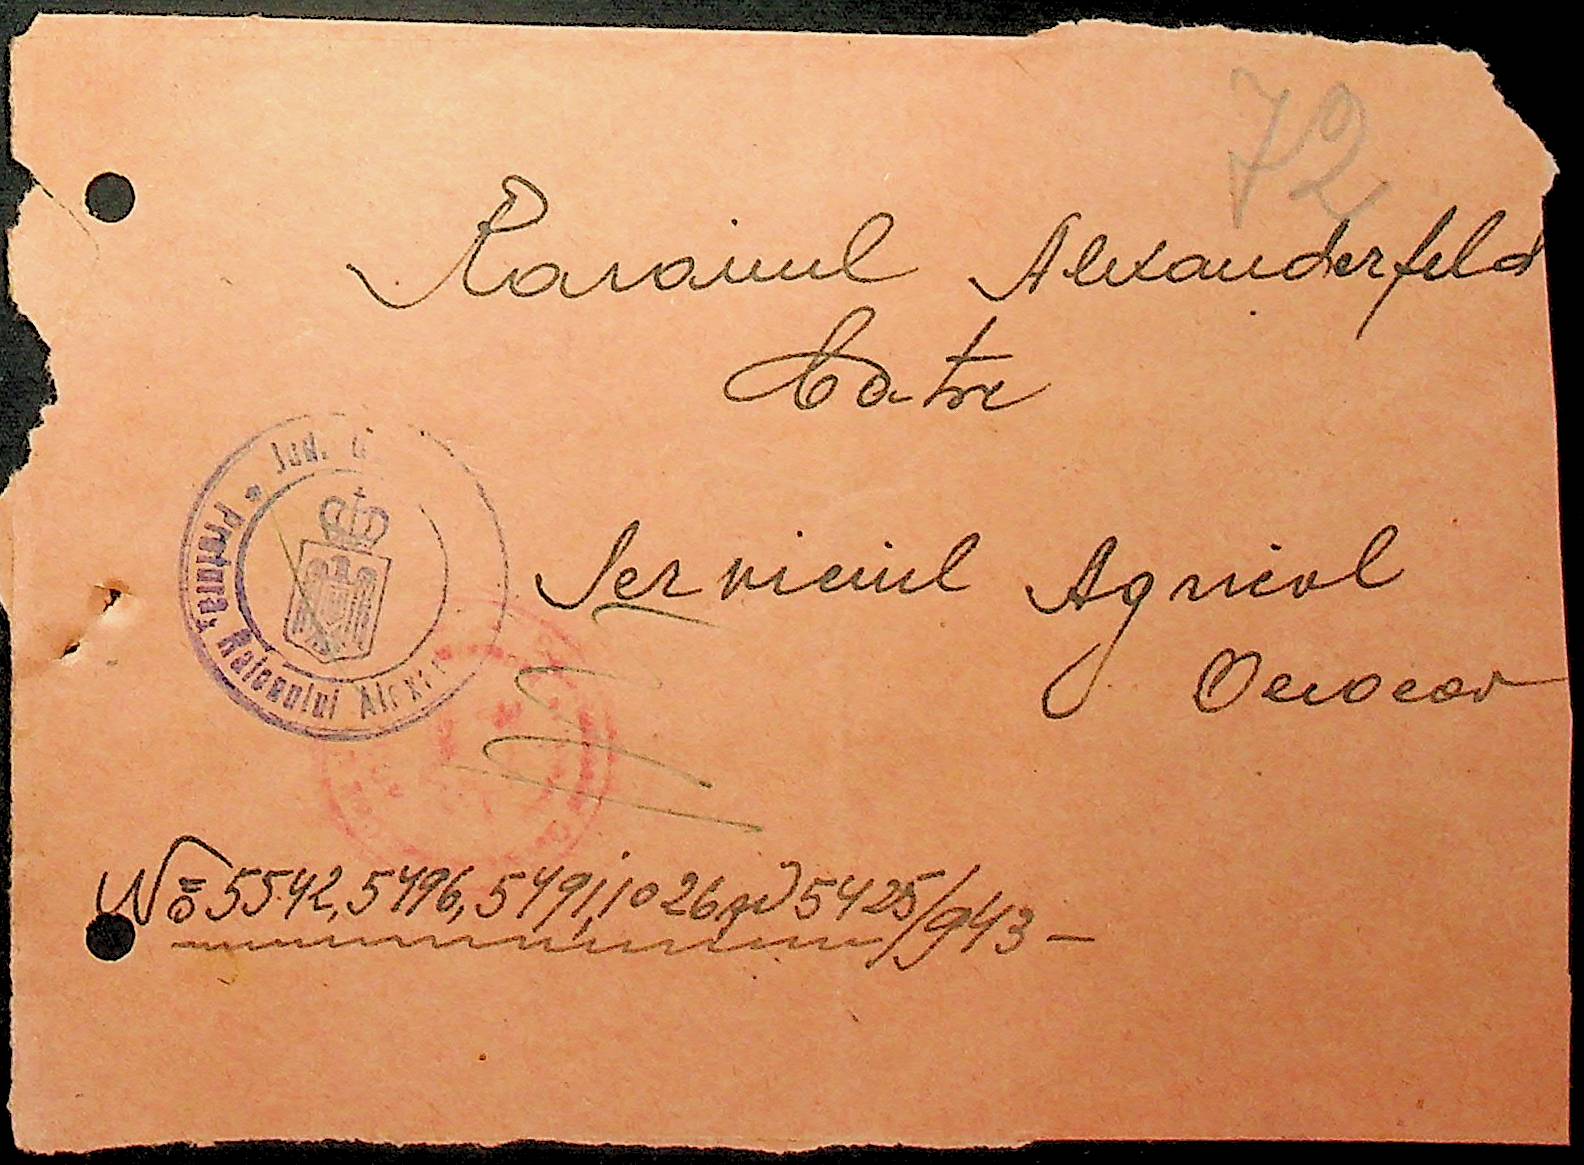 72
Raionul Alexanderfeld
Catre
Jud.
Pretura, Raionului Alexan
Serviciul Agricol
Ocacov
No 5542, 5496, 5491, 1026 și 5425/943 —